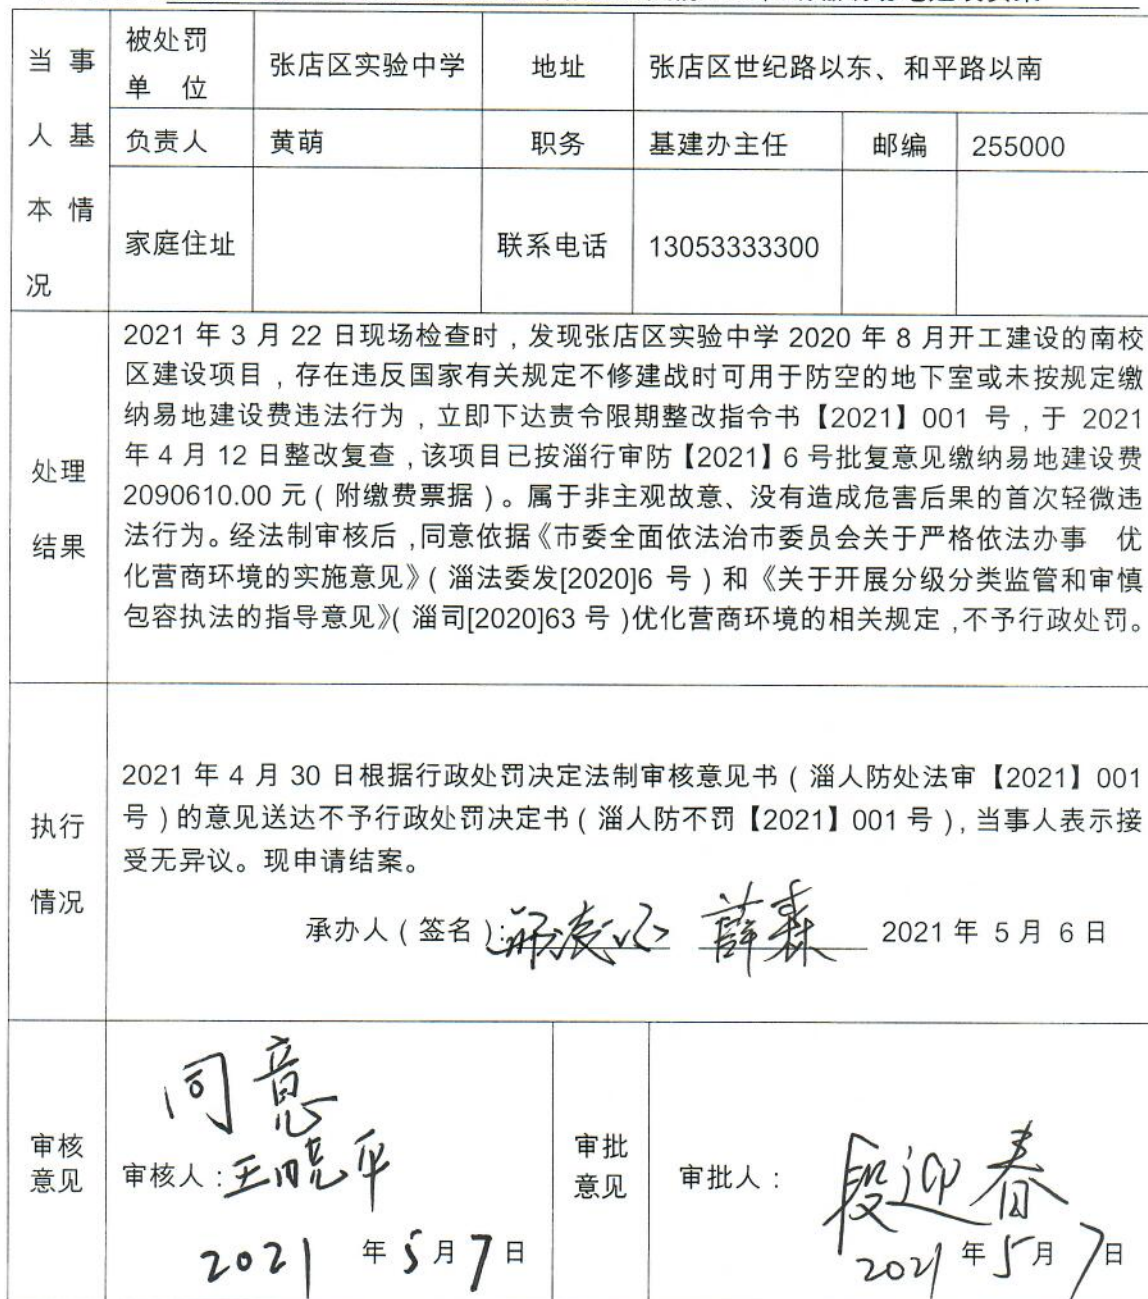 当 事 人 基 本 情 况
被处罚单 位 张店区实验中学 地址 张店区世纪路以东、和平路以南
负责人 黄萌 职务 基建办主任 邮编 255000
家庭住址 联系电话 13053333300
处理结果
2021 年 3 月 22 日现场检查时，发现张店区实验中学 2020 年 8 月开工建设的南校
区建设项目，存在违反国家有关规定不修建战时可用于防空的地下室或未按规定缴
纳易地建设费违法行为，立即下达责令限期整改指令书【2021】001 号，于 2021
年 4 月 12 日整改复查，该项目已按淄行审防【2021】6 号批复意见缴纳易地建设费
2090610.00 元（附缴费票据）。属于非主观故意、没有造成危害后果的首次轻微违
法行为。经法制审核后，同意依据《市委全面依法治市委员会关于严格依法办事 优
化营商环境的实施意见》（淄法委发[2020]6 号）和《关于开展分级分类监管和审慎
包容执法的指导意见》（淄司[2020]63 号）优化营商环境的相关规定，不予行政处罚。
执行情况
2021 年 4 月 30 日根据行政处罚决定法制审核意见书（淄人防处法审【2021】001
号）的意见送达不予行政处罚决定书（淄人防不罚【2021】001 号），当事人表示接
受无异议。现申请结案。
承办人（签名）： 薛森 2021 年 5 月 6 日
审核意见
同意
审核人：王晓平
2021 年 5 月 7 日
审批意见
审批人： 段迎春
2021 年 5 月 7 日